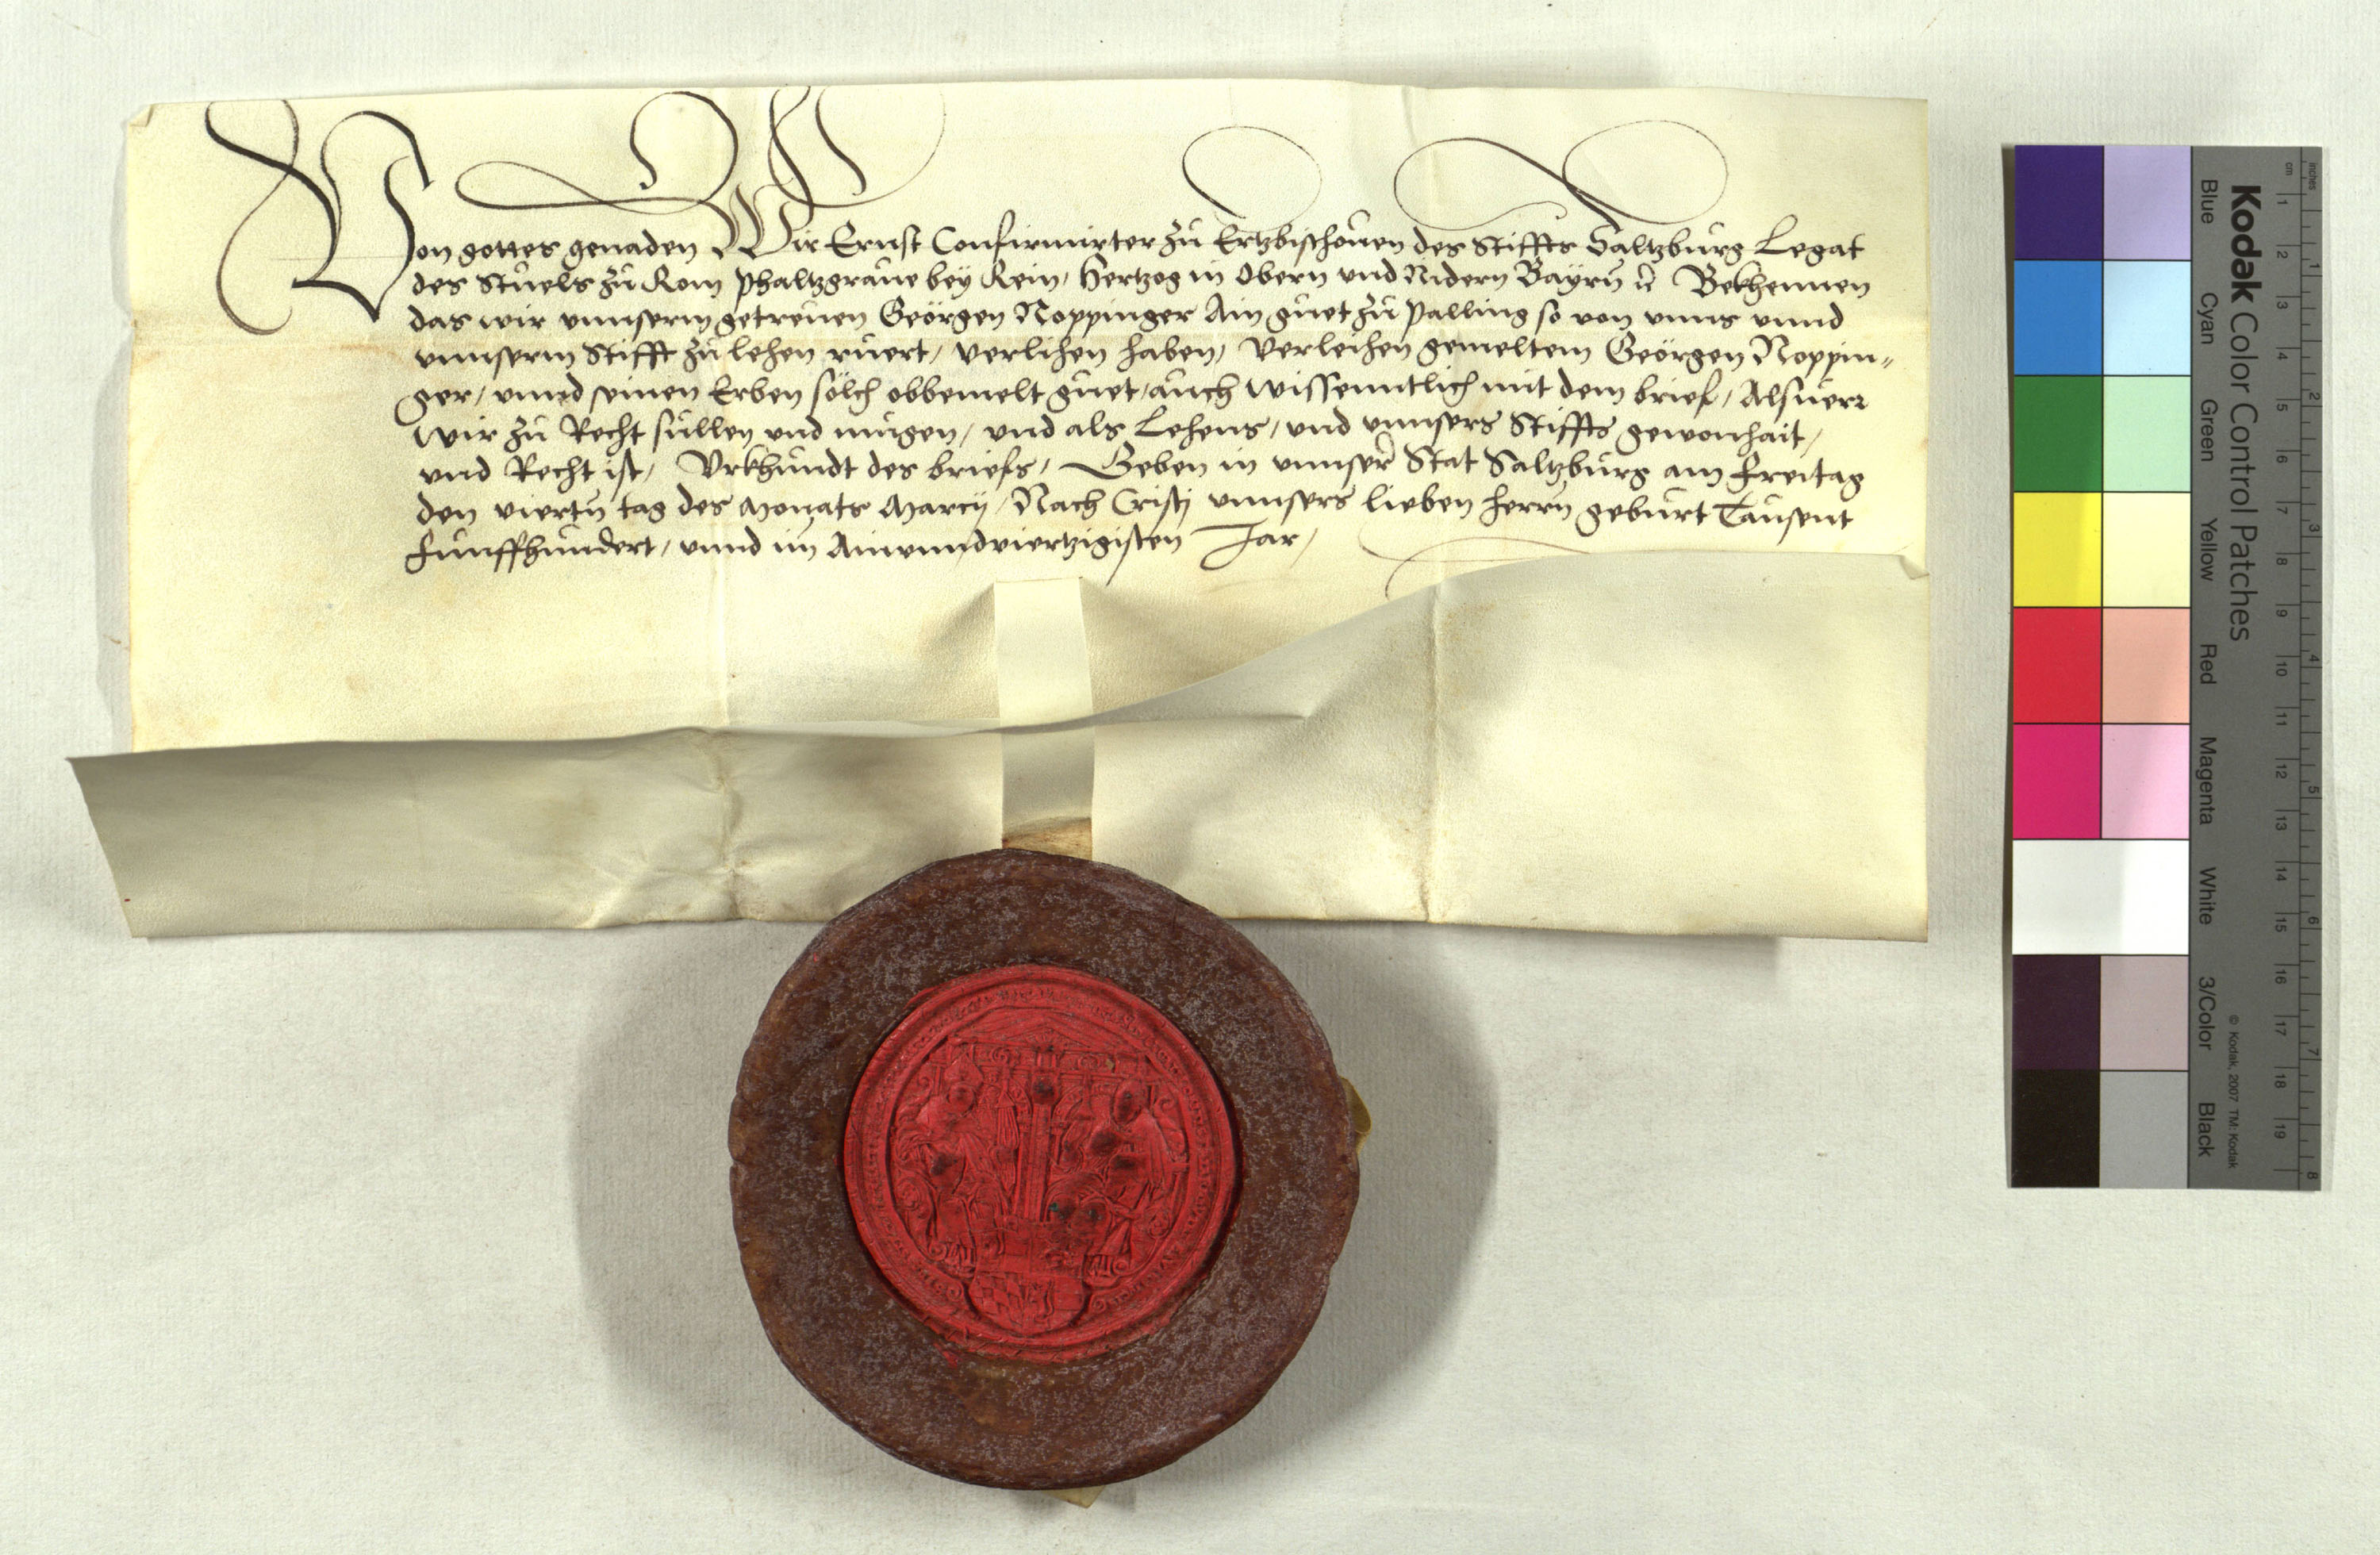 Von gottes genaden Wir Ernst Confirmirter zu Ertzbischouen des Stiffts Saltzburg Legat
des Stuels zu Rom Phaltzgraue bey Rein, Hertzog in Obern vnd Nidern Bayrn ꝛc Bekhennen
das wir vnnserm getreuen Geörgen Noppinger Ain guet zu Palling so von vnns vnnd
vnnserm Stifft zu lehen ruert, verlihen haben, Verleihen gemeltem Geörgen Noppin„
ger, vnnd seinen Erben sölch obbemelt guet, auch wissenntlich mit dem brief, Alsuerr
wir zu Recht sullen vnd mugen, vnd als Lehens, vnd vnnsers Stiffts gewonhait,
vnd Recht ist, Vrkhundt des briefs, Geben in vnnser Stat Saltzburg am Freitag
den viertn tag des Monats Marcij, Nach Cristj vnnsers lieben herrn geburt Tausent
Funffhundert, vnnd im Ainvnndviertzigisten Jar,
Kodak Color Control Patches
© Kodak, 2007 TM: Kodak
Blue Cyan Green Yellow Red Magenta White 3/Color Black
cm 1 2 3 4 5 6 7 8 9 10 11 12 13 14 15 16 17 18 19
inches 1 2 3 4 5 6 7 8